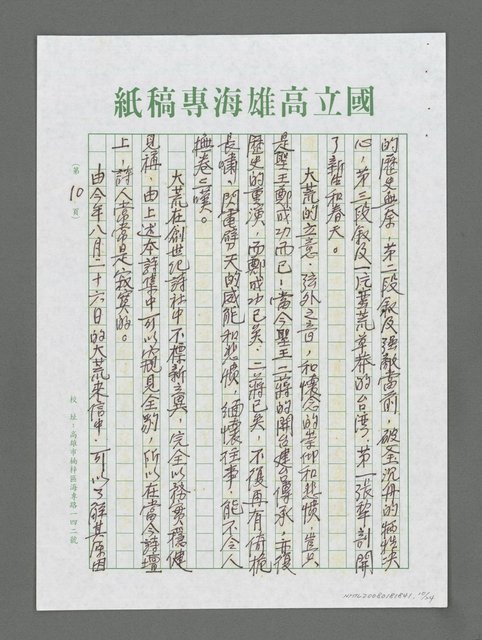 國立高雄海專稿紙
的歷史血淚，第二段叙及強敵當前，破釜沉舟的犧牲決
心，第三段叙及一片蓁荒草莽的台灣，第一張犂剖開
了新生和春天。
大荒的立意，弦外之音，和懷念的崇仰和悲憤，豈只
是聖王鄭成功而已！當今聖王二蔣的開台建台傳承，亦復
歷史的重演，而鄭成功已矣，二蔣已矣，不復再有倚桅
長嘯，閃電劈天的威能和悲憤，緬懷往事，能不令人
撫卷三嘆。
大荒在創世紀詩社中不標新立異，完全以務實穩健
見稱，由上述本詩集中可以窺見全豹，所以在當今詩壇
上，詩人常常是寂寞的。
由今年八月二十六日的大荒來信中，可以了解其原因
（第 10 頁）
校址：高雄市楠梓區海專路一四二號
NMTL20080181841 10/24